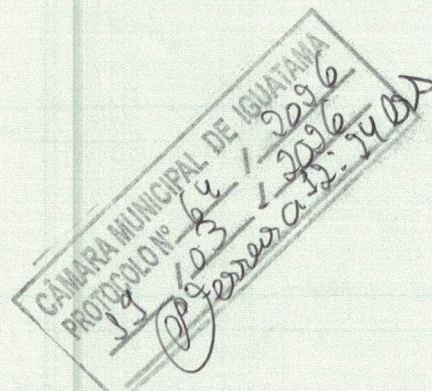 CÂMARA MUNICIPAL DE IGUATAMA
PROTOCOLO Nº 64 / 2026
19 / 03 / 2026
Ferreira